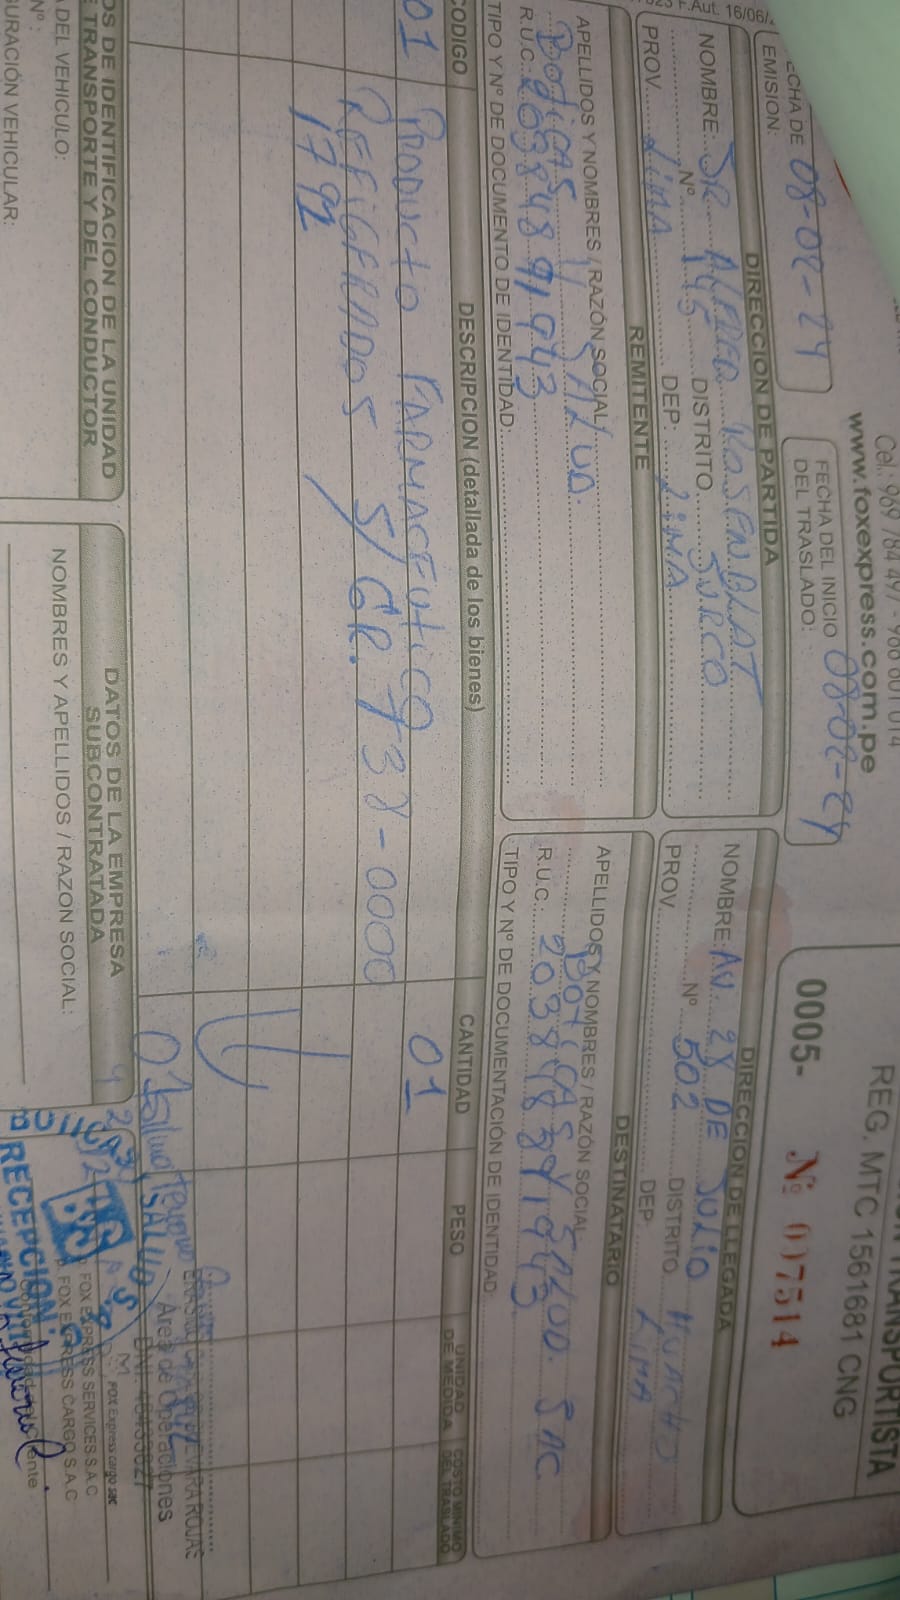 Cel.: 969 784 497 - 966 601 014
www.foxexpress.com.pe
TRANSPORTISTA
REG. MTC 1561681 CNG
0005- Nº 007514
F.Aut. 16/06/
FECHA DE EMISION: 08-02-24
FECHA DEL INICIO DEL TRASLADO: 08-02-24
DIRECCION DE PARTIDA
NOMBRE: JR ALFREDO ROSENBLAT
Nº 145 DISTRITO SURCO
PROV. LIMA DEP. LIMA
DIRECCION DE LLEGADA
NOMBRE: AV. 28 DE JULIO
Nº 502 DISTRITO HUACHO
PROV. DEP. LIMA
REMITENTE
APELLIDOS Y NOMBRES / RAZÓN SOCIAL
BOTICAS Y SALUD.
R.U.C.: 20384891943
TIPO Y Nº DE DOCUMENTO DE IDENTIDAD:
DESTINATARIO
APELLIDOS Y NOMBRES / RAZÓN SOCIAL
BOTICAS Y SALUD. SAC.
R.U.C.: 20384891943.
TIPO Y Nº DE DOCUMENTACIÓN DE IDENTIDAD
CODIGO DESCRIPCION (detallada de los bienes) CANTIDAD PESO UNIDAD DE MEDIDA COSTO MINIMO DEL TRASLADO
01 PRODUCTO FARMACEUTICO 01
REFIGERADOS S/GR. T38-0000
1792
Area de Operaciones
DATOS DE IDENTIFICACION DE LA UNIDAD DE TRANSPORTE Y DEL CONDUCTOR
DEL VEHICULO:
Nº:
CONFIGURACIÓN VEHICULAR:
DATOS DE LA EMPRESA SUBCONTRATADA
NOMBRES Y APELLIDOS / RAZON SOCIAL:
FOX Express cargo sac
FOX EXPRESS SERVICES S.A.C
FOX EXPRESS CARGO S.A.C
RECEPCION